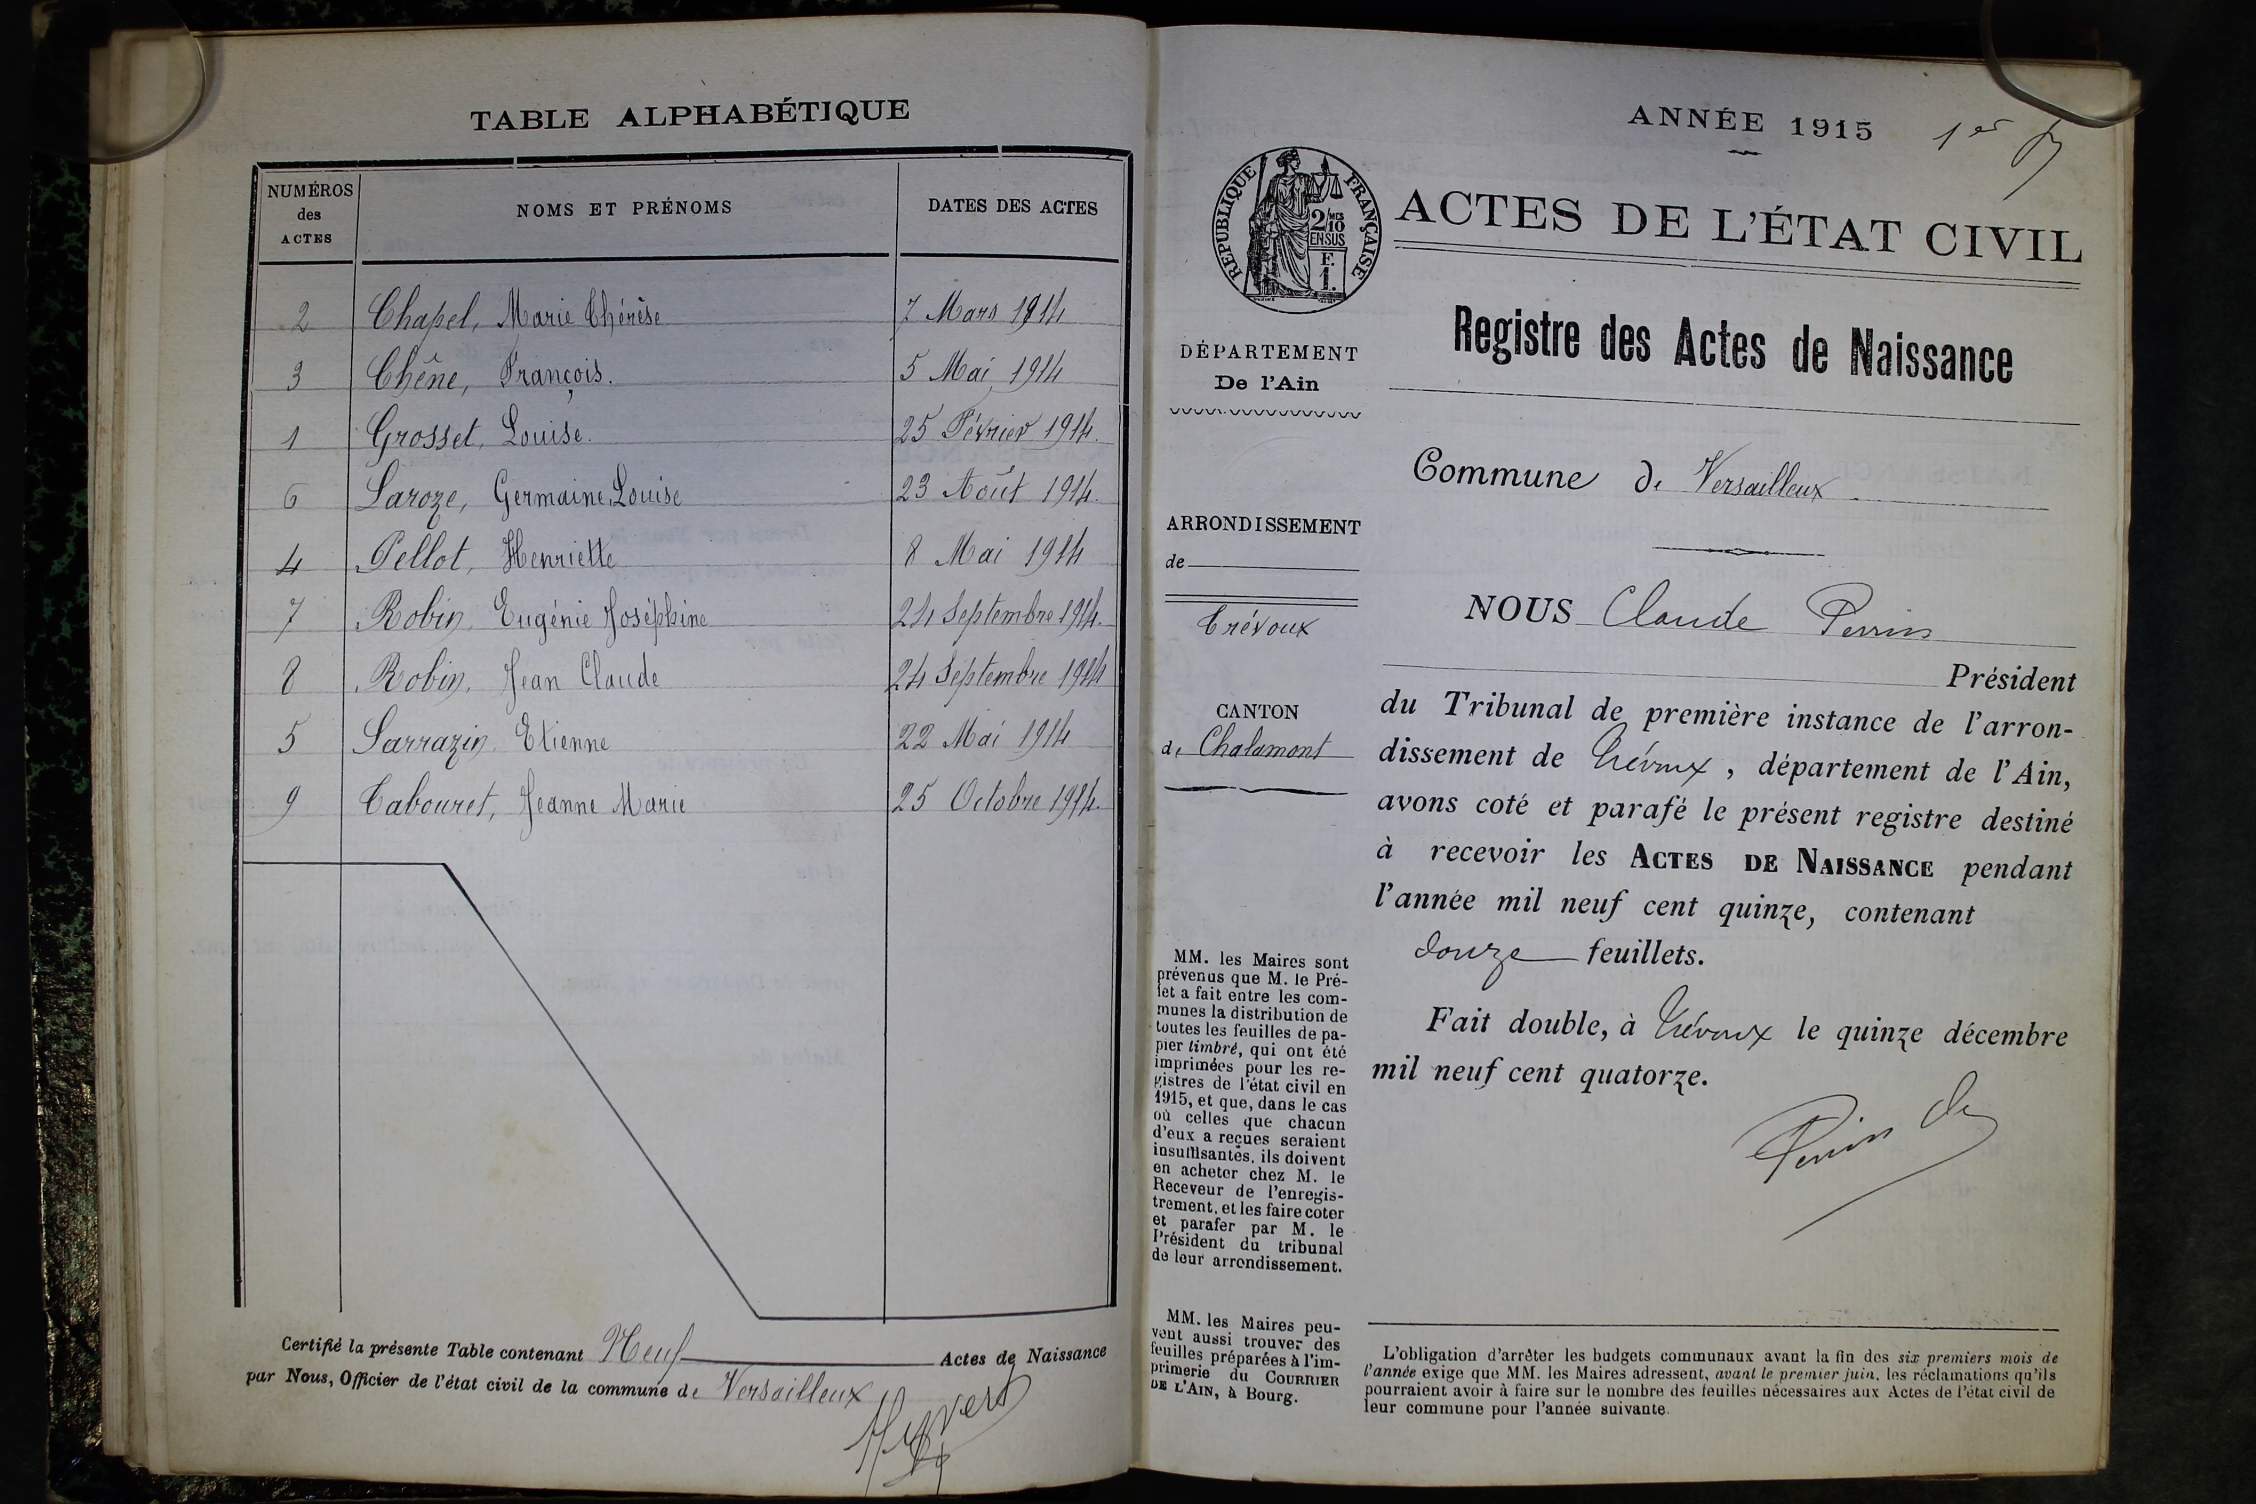 TABLE ALPHABÉTIQUE
NUMÉROS des ACTES
NOMS ET PRÉNOMS
DATES DES ACTES
2 Chapel, Marie Thérèse 7 Mars 1914
3 Chêne, François. 5 Mai 1914
1 Grosset, Louise. 25 Février 1914.
6 Laroze, Germaine Louise 23 Août 1914.
4 Pellot, Henriette 8 Mai 1914
7 Robin, Eugénie Joséphine 24 Septembre 1914.
8 Robin, Jean Claude 24 Septembre 1914
5 Sarrazin Etienne 22 Mai 1914
9 Tabouret, Jeanne Marie 25 Octobre 1914.
Certifié la présente Table contenant Neuf Actes de Naissance
par Nous, Officier de l'état civil de la commune de Versailleux
ANNÉE 1915
1er
RÉPUBLIQUE FRANÇAISE
2/10 MES
EN SUS
F.
1.
ACTES DE L'ÉTAT CIVIL
DÉPARTEMENT
De l'Ain
Registre des Actes de Naissance
Commune de Versailleux
ARRONDISSEMENT
de
Trévoux
CANTON
de Chalamont
NOUS Claude Perrin
Président
du Tribunal de première instance de l'arron-
dissement de Trévoux, département de l'Ain,
avons coté et parafé le présent registre destiné
à recevoir les ACTES DE NAISSANCE pendant
l'année mil neuf cent quinze, contenant
douze feuillets.
Fait double, à Trévoux le quinze décembre
mil neuf cent quatorze.
Perrin
MM. les Maires sont
prévenus que M. le Pré-
fet a fait entre les com-
munes la distribution de
toutes les feuilles de pa-
pier timbré, qui ont été
imprimées pour les re-
gistres de l'état civil en
1915, et que, dans le cas
où celles que chacun
d'eux a reçues seraient
insuffisantes, ils doivent
en acheter chez M. le
Receveur de l'enregis-
trement, et les faire coter
et parafer par M. le
Président du tribunal
de leur arrondissement.
MM. les Maires peu-
vent aussi trouver des
feuilles préparées à l'im-
primerie du COURRIER
DE L'AIN, à Bourg.
L'obligation d'arrêter les budgets communaux avant la fin des six premiers mois de
l'année exige que MM. les Maires adressent, avant le premier juin, les réclamations qu'ils
pourraient avoir à faire sur le nombre des feuilles nécessaires aux Actes de l'état civil de
leur commune pour l'année suivante.